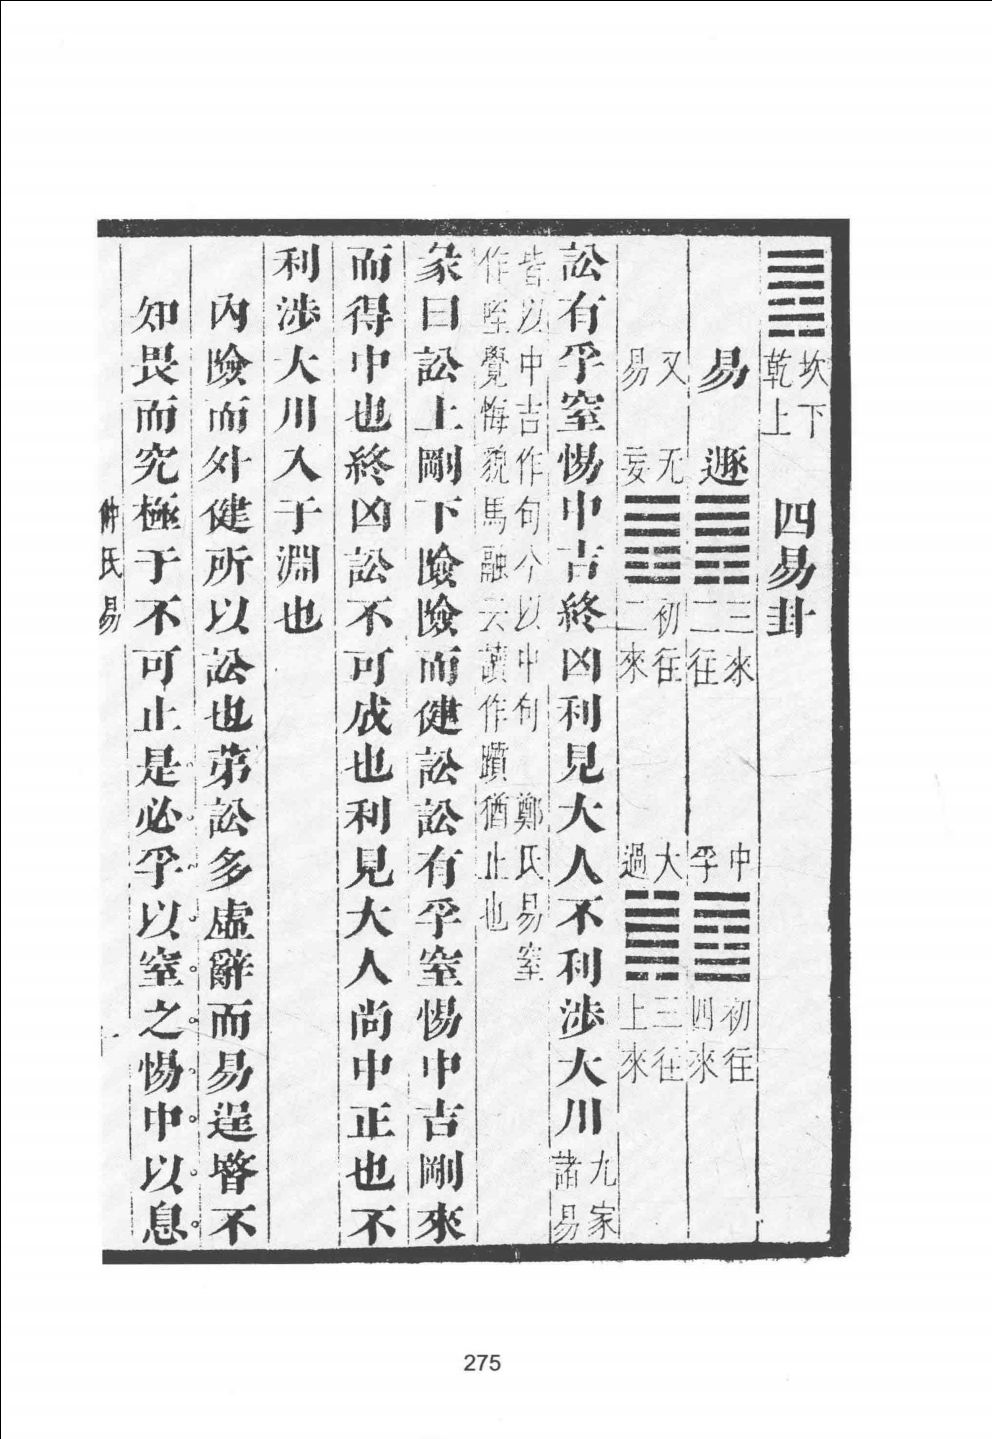 ䷅坎下乾上 四易卦
易 遯䷠三來二往 中孚䷼初往四來
又易 无妄䷘初往二來 大過䷛三往上來
訟有孚窒惕中吉終凶利見大人不利涉大川九家諸易
皆以中吉作句今以中句 鄭氏易窒
作咥覺悔貌馬融云讀作躓猶止也
彖曰訟上剛下險險而健訟訟有孚窒惕中吉剛來
而得中也終凶訟不可成也利見大人尚中正也不
利涉大川入于淵也
內險而外健所以訟也苐訟多虛辭而易逞朁不
知畏而究極于不可止是必孚以窒之惕中以息
仲氏易
275